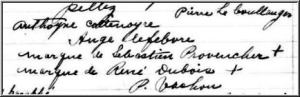 pelley Pierre Le boullenger
anthoyne callenoyre
Ange Lefebvre
marque de Sebastien Provencher +
marque de René Dubois +
P. Vachon